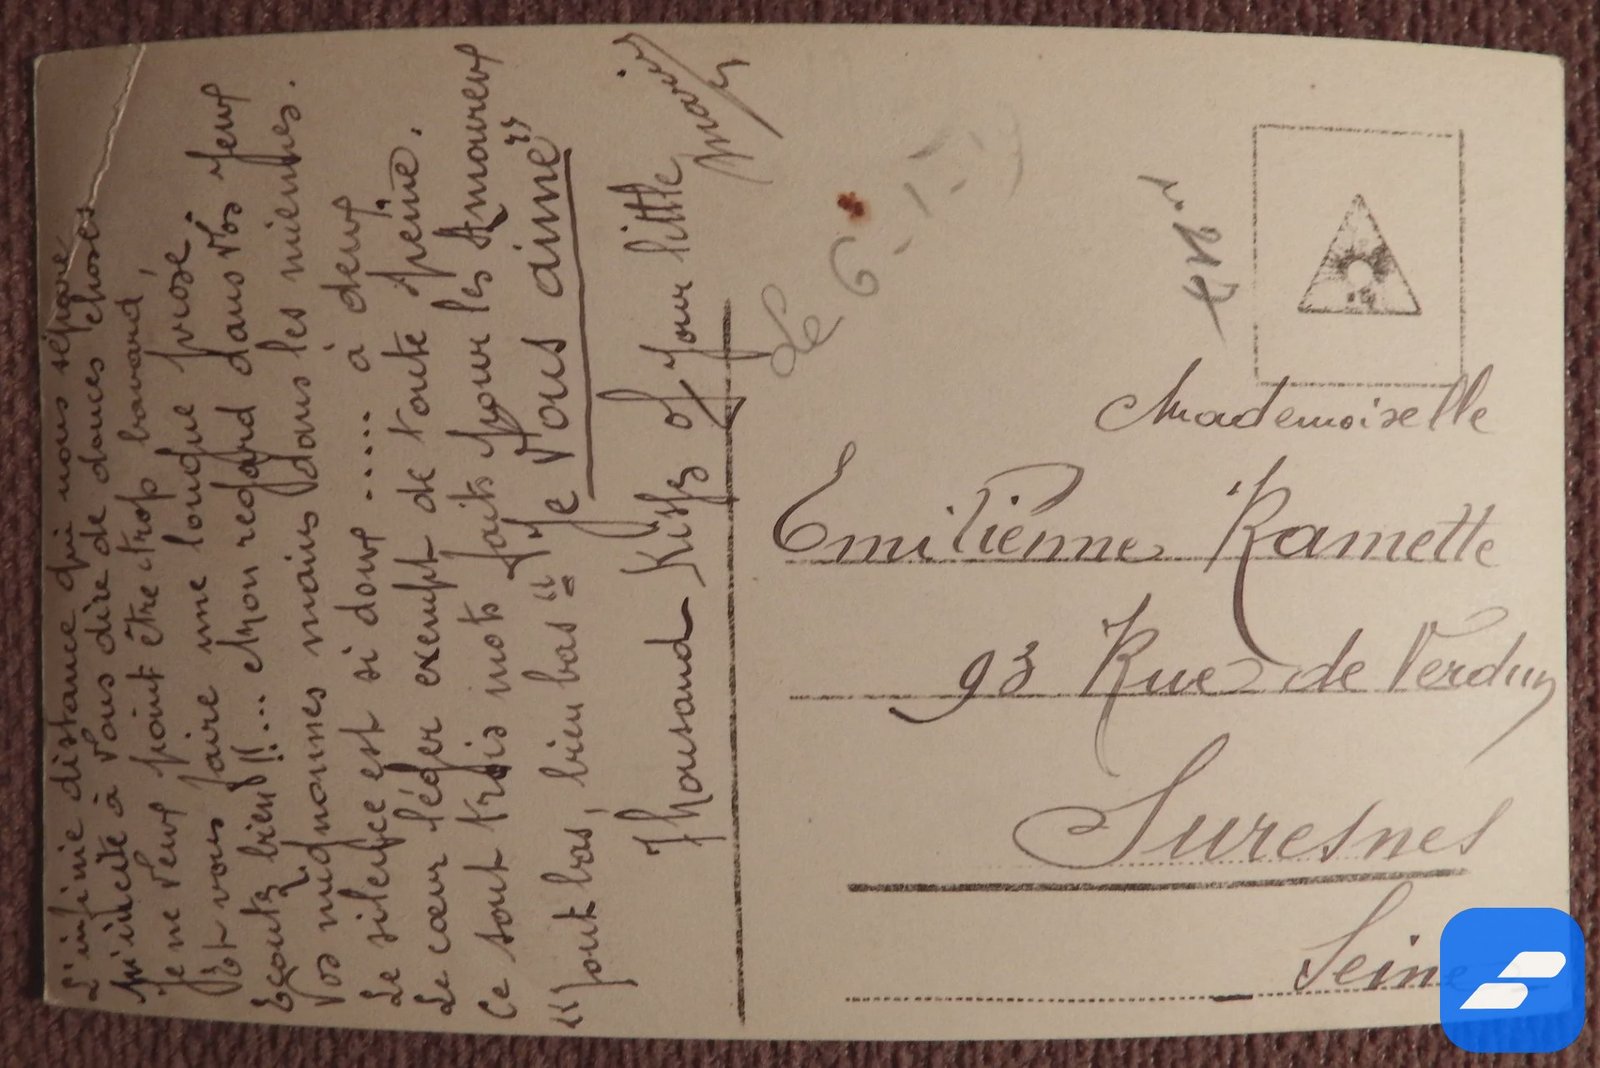 L'infinie distance qui nous sépare
M'incite à vous dire de douces choses
Je ne veux point être trop bavard,
Et vous faire une longue prose
Ecoutez bien!!... Mon regard dans vos yeux
Vos mignonnes mains dans les miennes.
Le silence est si doux ..... à deux
Le cœur léger exempt de toute peine.
Ce sont trois mots faits pour les Amoureux
"tout bas, bien bas" = "Je vous aime"
Thousand Kisses of your little
Le 6.-1-
Mademoiselle
Emilienne Ramette
93 Rue de Verdun
Suresnes
Seine